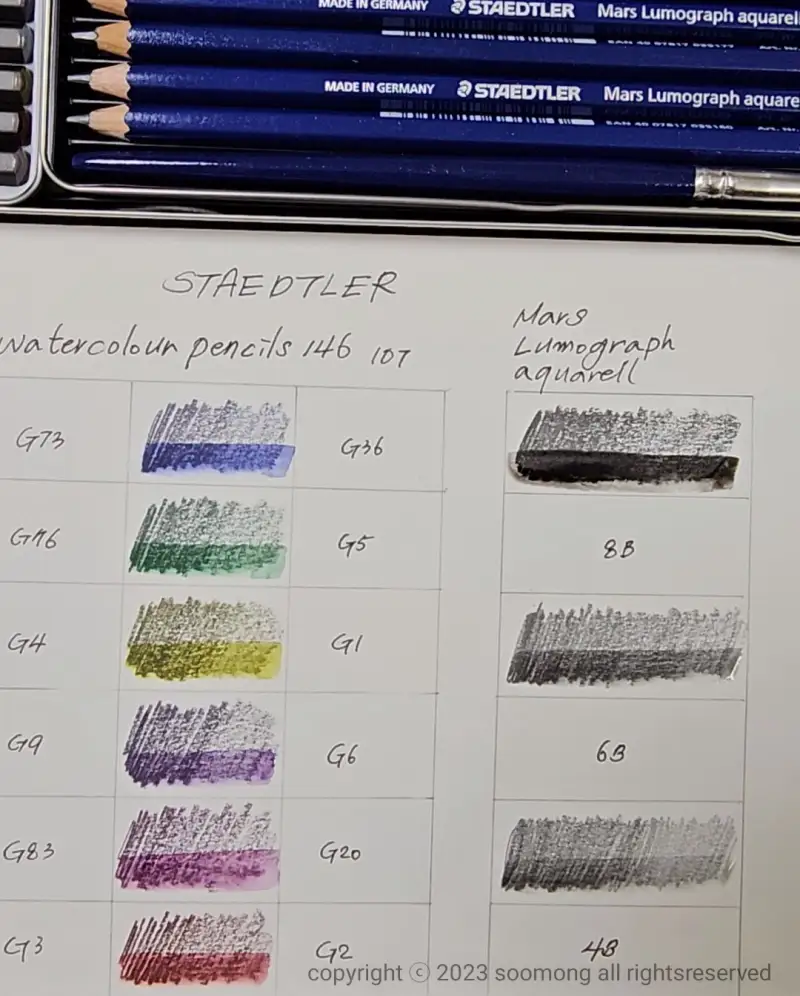 MADE IN GERMANY STAEDTLER Mars Lumograph aquarell
MADE IN GERMANY STAEDTLER Mars Lumograph aquare
STAEDTLER
watercolour pencils 146 107
Mars
Lumograph
aquarell
G73 G36
8B
G76 G5
G4 G1
6B
G9 G6
G83 G20
4B
G3 G2
copyright ⓒ 2023 soomong all rightsreserved